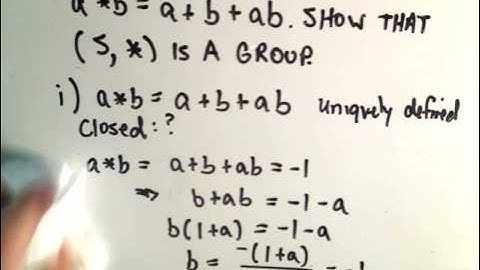 a*b = a+b+ab. SHOW THAT
(S,*) IS A GROUP.
i) a*b = a+b+ab uniquely defined
Closed: ?
a*b = a+b+ab = -1
⇒ b+ab = -1-a
b(1+a) = -1-a
b = -(1+a)